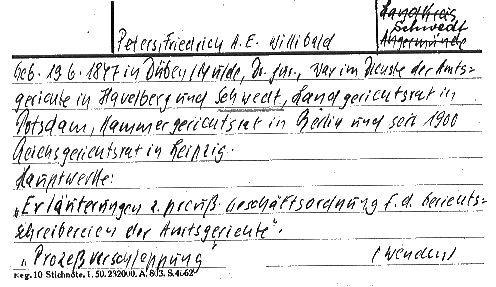 Landkreis
Schwedt
Angermünde
Peters, Friedrich A. E. Willibald
Geb. 19.6.1847 in Düben/Mulde, Dr. jur., war im Dienste der Amts-
gerichte in Havelberg und Schwedt, Landgerichtsrat in
Potsdam, Kammergerichtsrat in Berlin und seit 1900
Reichsgerichtsrat in Leipzig.
Hauptwerke:
"Erläuterungen z. preuß. Geschäftsordnung f. d. Gerichts-
schreibereien der Amtsgerichte".
"Prozeßverschleppung" (Wenden)
Reg. 10 Stichnote, I. 50. 232000. A. 803. S. 4662